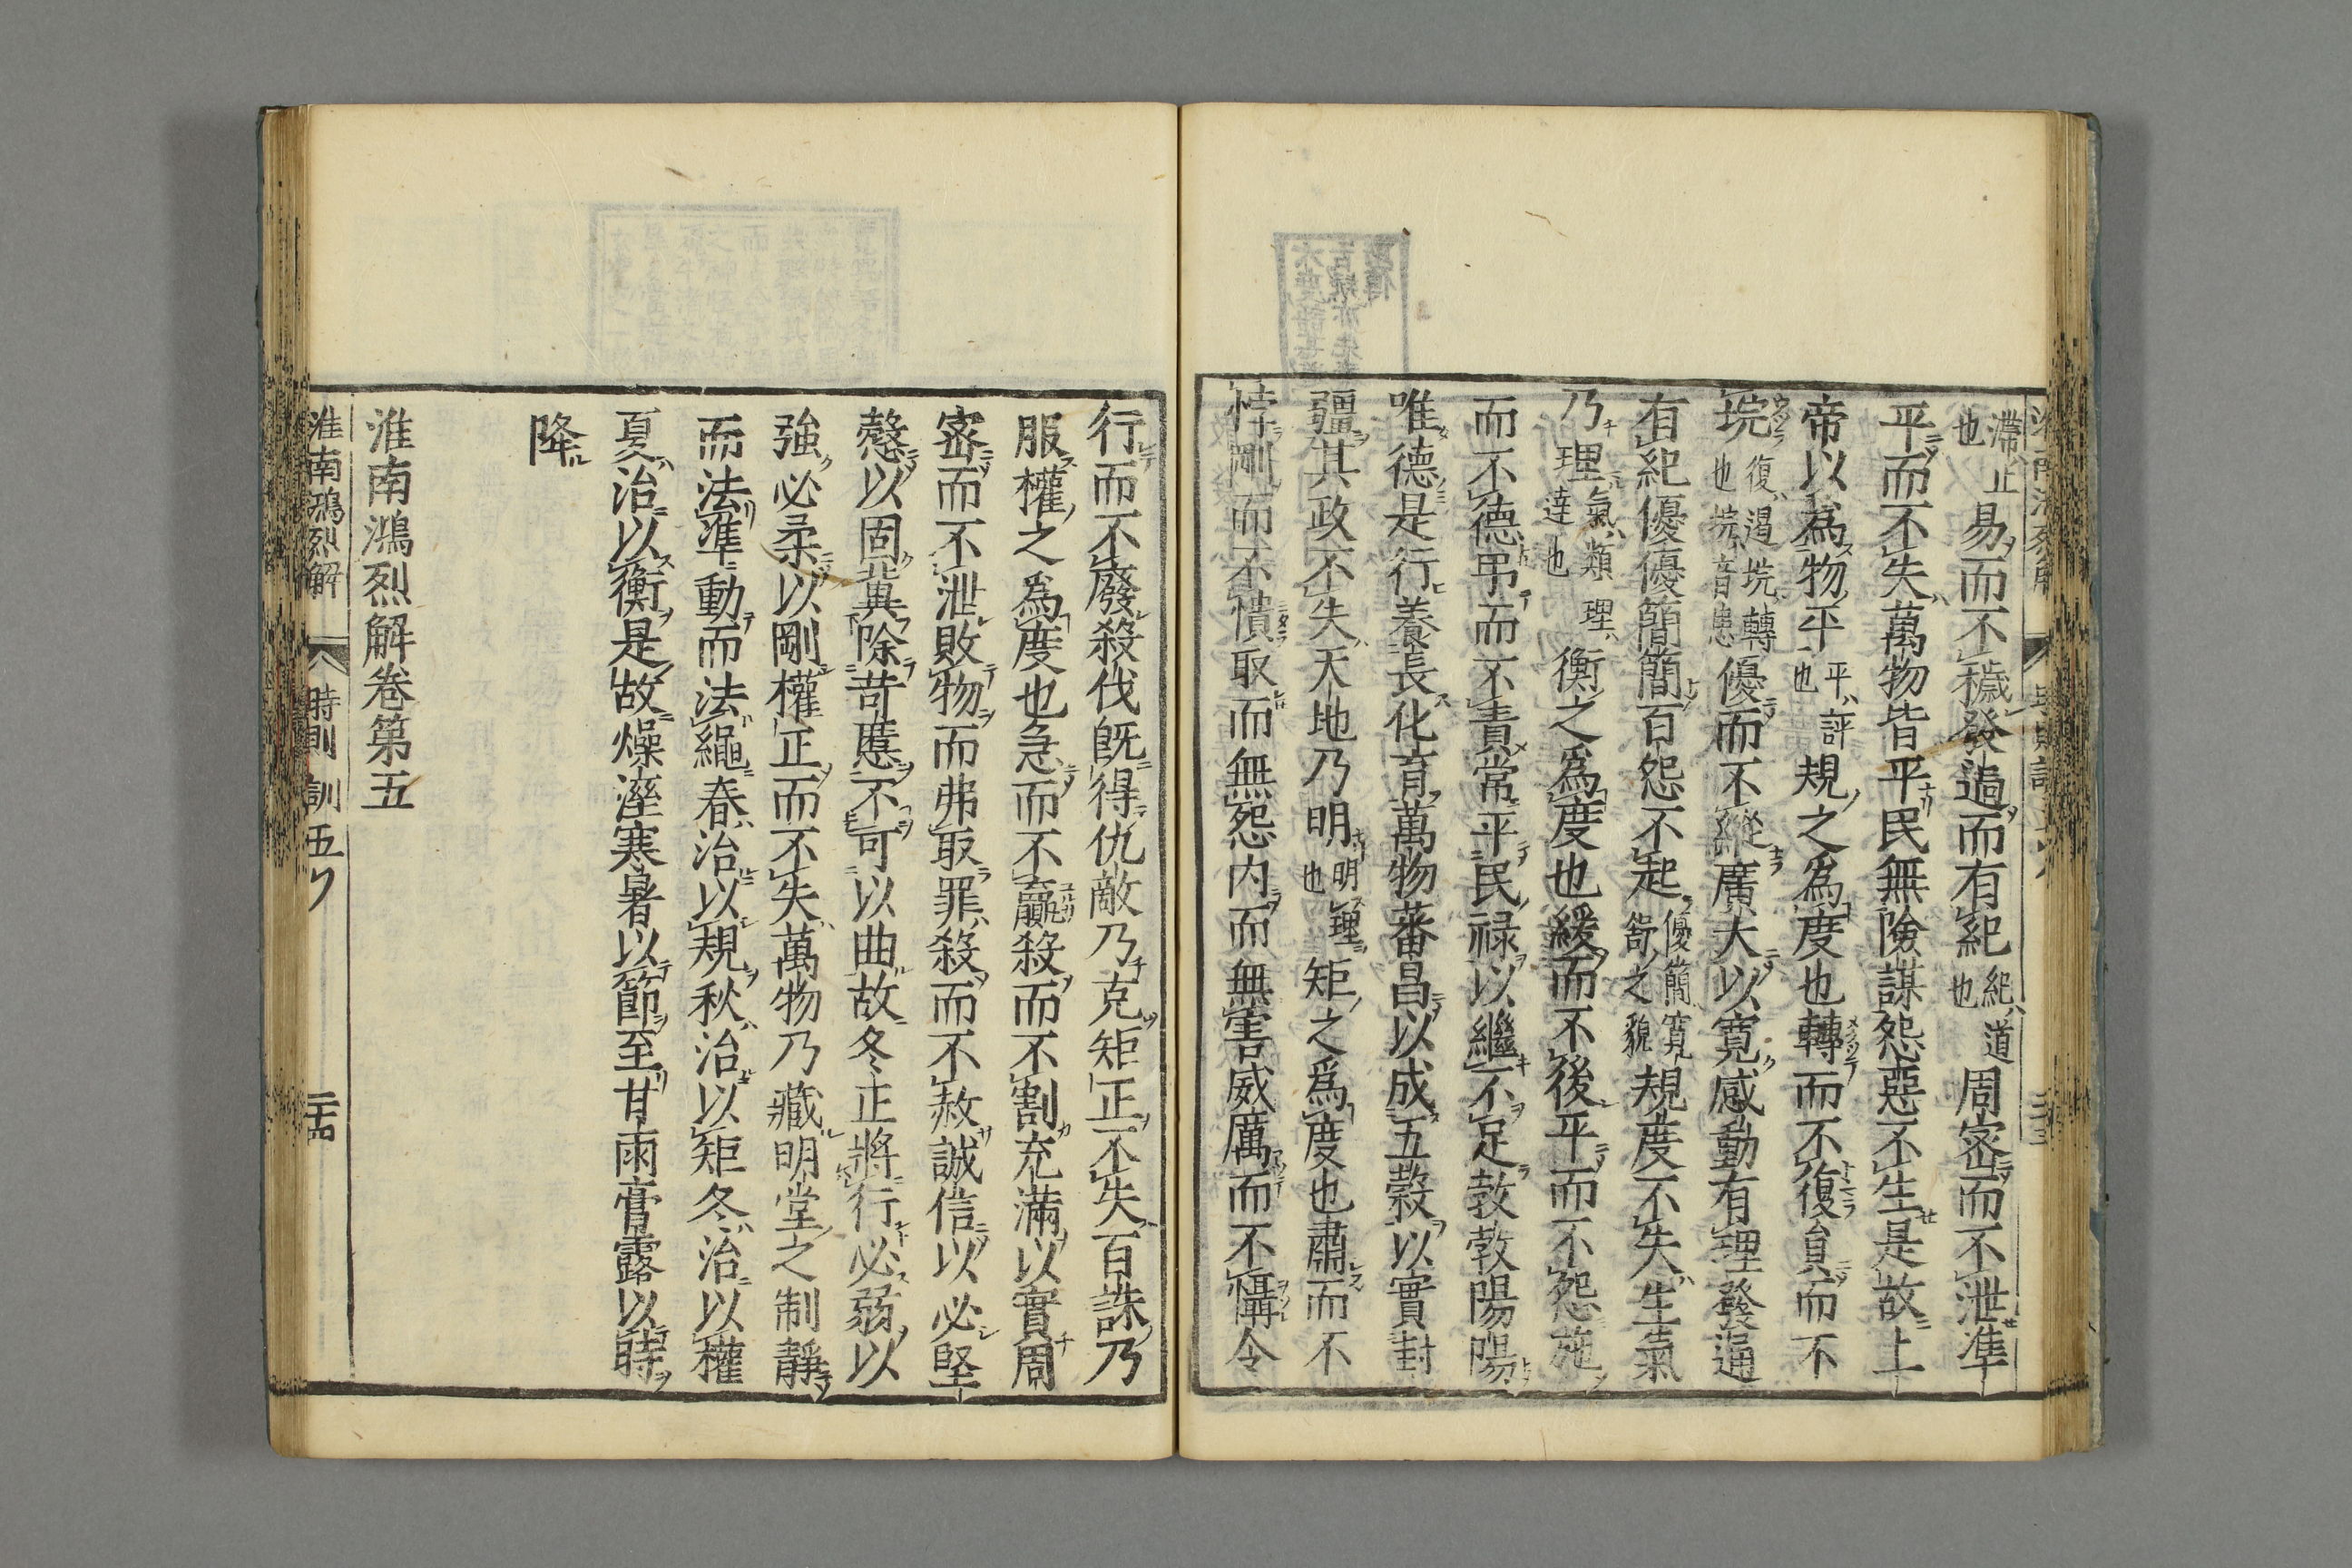 滯止也易而不穢發逷而有紀紀道也周密而不泄準
平而不失萬物皆平民無險謀怨惡不生是故上
帝以爲物平平評也規之爲度也轉而不復員而不
垸復遏垸轉也垸音患優而不縱廣大以寬感動有理發通
有紀優優簡簡百怨不起優簡寬舒之貌規度不失生氣
乃理氣類理達也衡之爲度也緩而不後平而不怨施
而不德弔而不責常平民祿以繼不足敦敦陽陽
唯德是行養長化育萬物蕃昌以成五穀以實封
疆其政不失天地乃明明理也矩之爲度也肅而不
悖剛而不憒取而無怨內而無害威厲而不懾令
行而不廢殺伐旣得仇敵乃克矩正不失百誅乃
服權之爲度也急而不贏殺而不割充滿以實周
密而不泄敗物而弗取罪殺而不赦誠信以必堅
愨以固冀除苛慝不可以曲故冬正將行必弱以
強必柔以剛權正而不失萬物乃藏明堂之制靜
而法準動而法繩春治以規秋治以矩冬治以權
夏治以衡是故燥溼寒暑以節至甘雨膏露以時
降
淮南鴻烈解卷第五
淮南鴻烈解 時則訓五 二十四